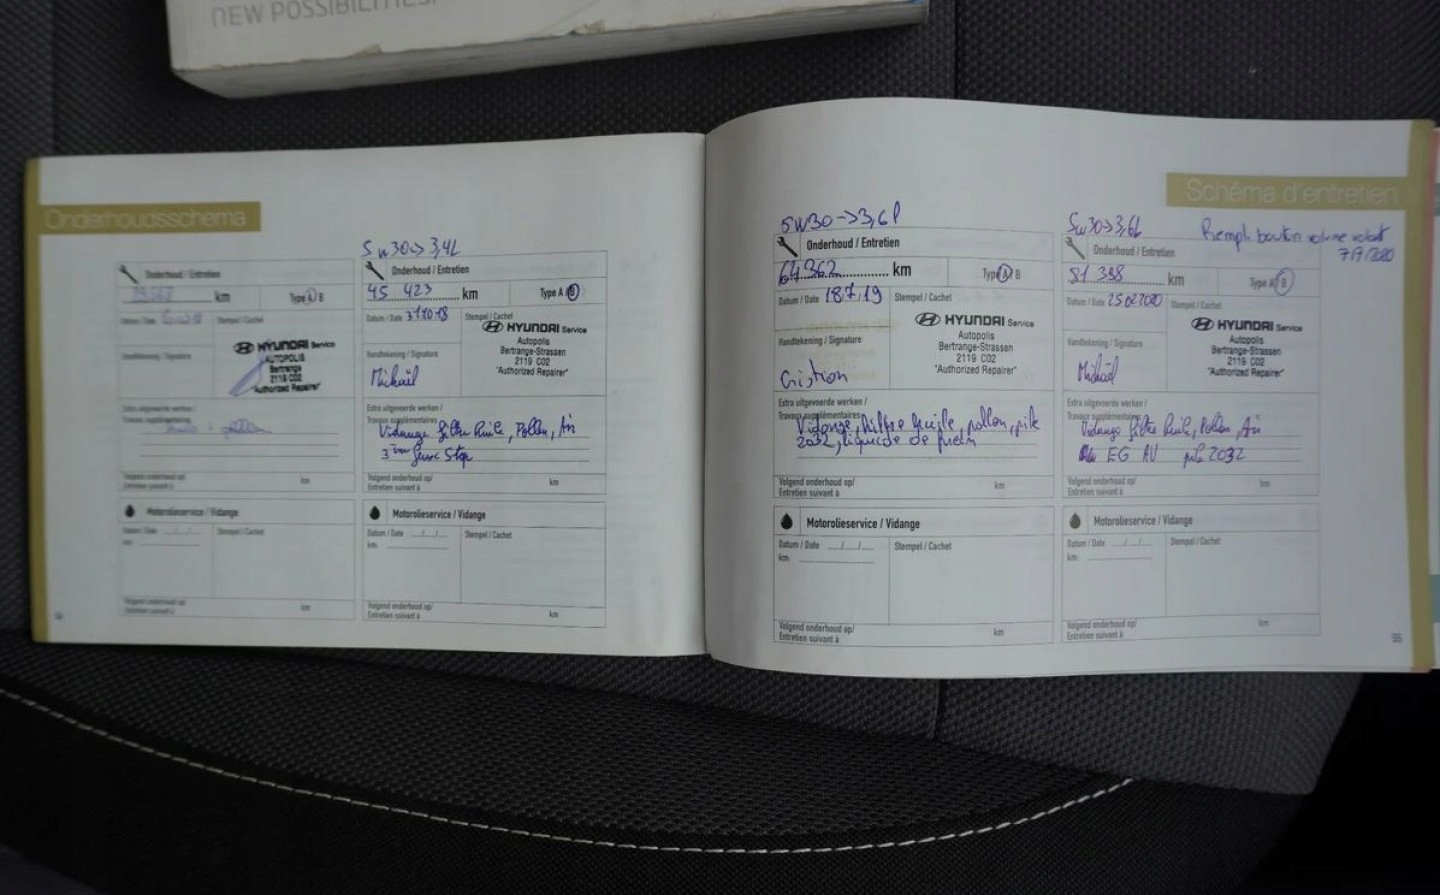 NEW POSSIBILITIES.
Onderhoudsschema
Onderhoud / Entretien
km
Type A B
Datum / Date
Stempel / Cachet
Handtekening / Signature
HYUNDAI Service
AUTOPOLIS
Bertrange
2119 C02
"Authorized Repairer"
Extra uitgevoerde werken /
Travaux supplémentaires
Volgend onderhoud op/
Entretien suivant à
km
Motorolieservice / Vidange
Datum / Date
Stempel / Cachet
km:
Volgend onderhoud op/
Entretien suivant à
km
5w30->3,4L
Onderhoud / Entretien
45 423 km
Type A B
Datum / Date 31 10 18
Stempel / Cachet
HYUNDAI Service
Autopolis
Bertrange-Strassen
2119 C02
"Authorized Repairer"
Handtekening / Signature
Mickaël
Extra uitgevoerde werken /
Travaux supplémentaires
Vidange filtre huile, Pollen, Air
Stop
Volgend onderhoud op/
Entretien suivant à
km
Motorolieservice / Vidange
Datum / Date
Stempel / Cachet
km:
Volgend onderhoud op/
Entretien suivant à
km
Schéma d'entretien
5W30->3,6l
Onderhoud / Entretien
64.362 km
Type A B
Datum / Date 18 7 19
Stempel / Cachet
HYUNDAI Service
Autopolis
Bertrange-Strassen
2119 C02
"Authorized Repairer"
Handtekening / Signature
Extra uitgevoerde werken /
Travaux supplémentaires
Vidange, filtre huile, pollen, pile
2032, liquide de frein
Volgend onderhoud op/
Entretien suivant à
km
Motorolieservice / Vidange
Datum / Date
Stempel / Cachet
km:
Volgend onderhoud op/
Entretien suivant à
km
5w30->3,6L
Rempl. bouton volume volant
7/7/2020
Onderhoud / Entretien
81 398 km
Type A B
Datum / Date 25 02 2020
Stempel / Cachet
HYUNDAI Service
Autopolis
Bertrange-Strassen
2119 C02
"Authorized Repairer"
Handtekening / Signature
Mickaël
Extra uitgevoerde werken /
Travaux supplémentaires
Vidange filtre huile, Pollen, Air
EG AV pile 2032
Volgend onderhoud op/
Entretien suivant à
km
Motorolieservice / Vidange
Datum / Date
Stempel / Cachet
km:
Volgend onderhoud op/
Entretien suivant à
km
55